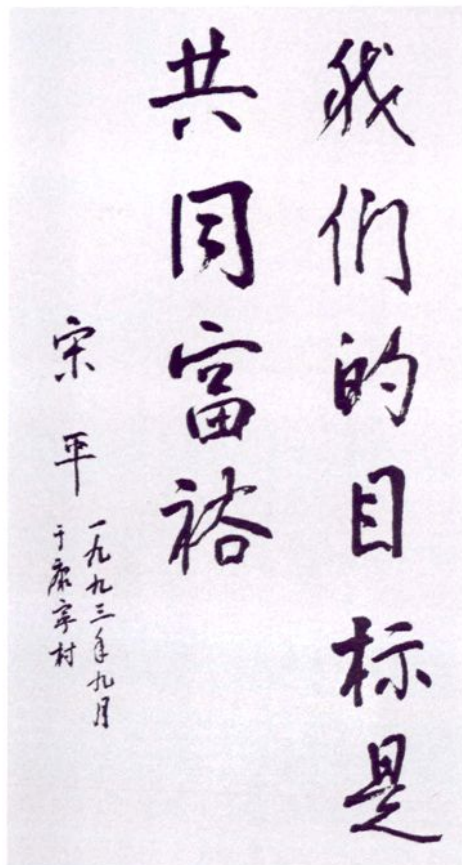 我们的目标是
共同富裕
宋平
一九九三年九月
于康宁村